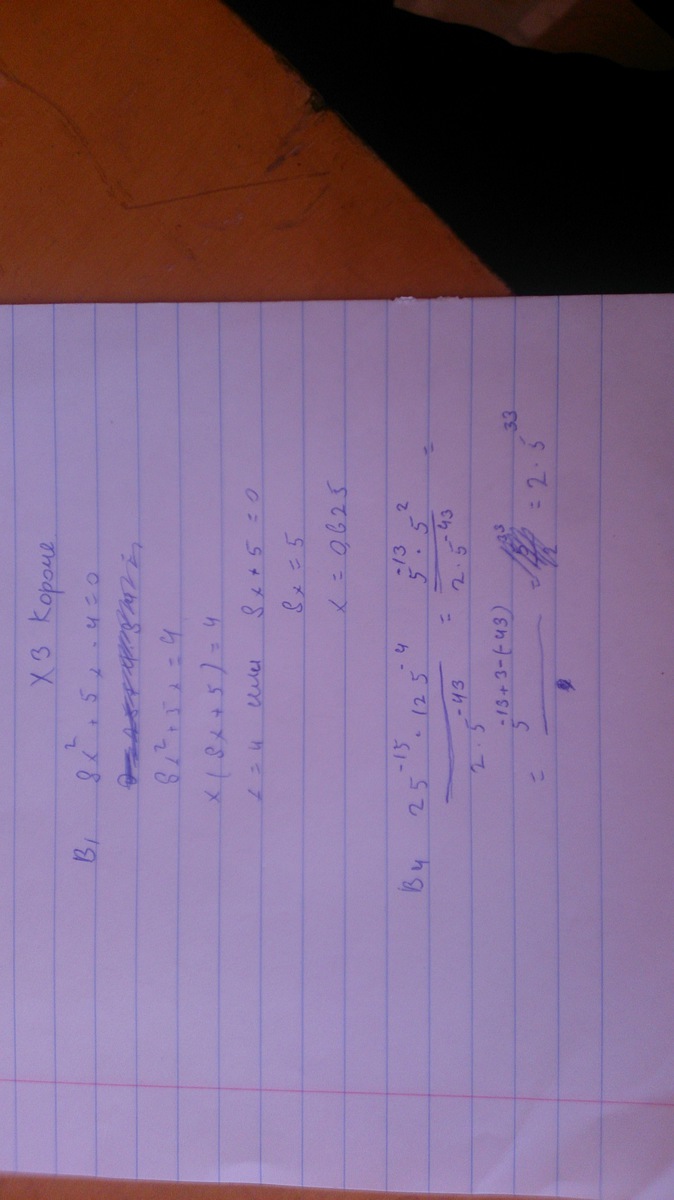 ХЗ короче
B1 8x² + 5x - 4 = 0
8x² + 5x = 4
x(8x + 5) = 4
x = 4 или 8x + 5 = 0
8x = 5
x = 0,625
B4 25⁻¹⁵ · 125⁻⁴ / 2·5⁻⁴³ = 5⁻¹³ · 5² / 2·5⁻⁴³ =
= 5⁻¹³⁺³⁻⁽⁻⁴³⁾ / 2 = = 2·5³³